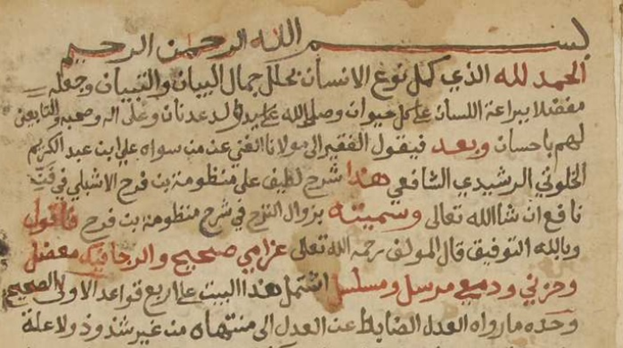 بسم الله الرحمن الرحيم
الحمد لله الذي كمل نوع الانسان بحلل جمال البيان والتبيان وجعله
مفضلا ببراعة اللسان على كل حيوان وصلى الله على سيد ولد عدنان وعلى اله وصحبه والتابعين
لهم باحسان وبعد فيقول الفقير الى مولانا الغني عن من سواه علي ابن عبد الكريم
الخلوتي الرشيدي الشافعي هذا شرح لطيف على منظومة بن فرح الاشبلي في فن
نافع ان شا الله تعالى وسميته بزوال الترح في شرح منظومة بن فرح فاقول
وبالله التوفيق قال المولف رحمه الله تعالى غرامي صحيح والرجا فيك معضل
وحزني ودمعي مرسل ومسلسل اشتمل هذا البيت على اربع قواعد الاولى الصحيح
وحده ما رواه العدل الضابط عن العدل الى منتهاه من غير شذوذ ولا علة